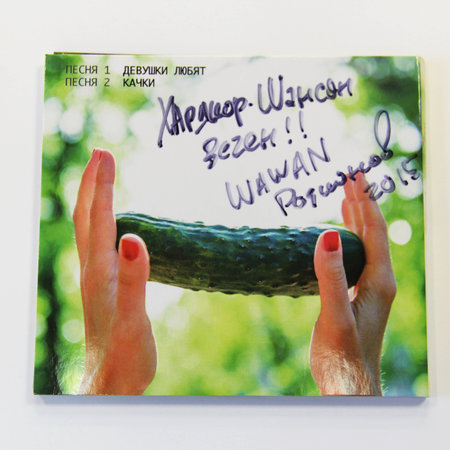 ПЕСНЯ 1 ДЕВУШКИ ЛЮБЯТ
ПЕСНЯ 2 КАЧКИ
Хардкор-Шансон
WAWAN
2015